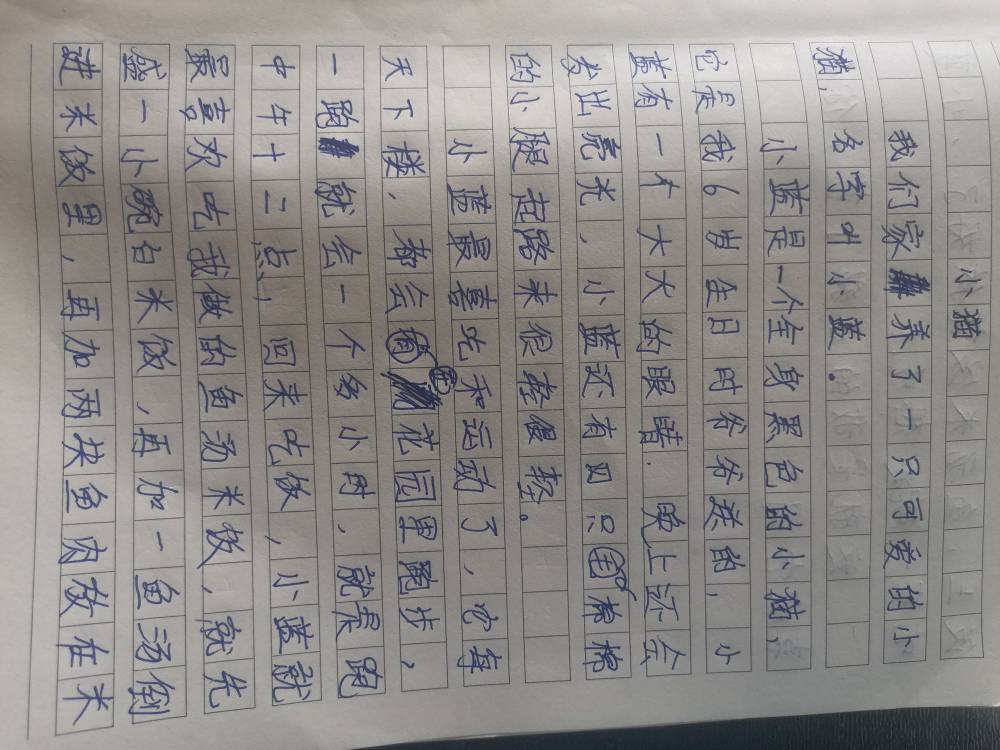 小猫
我们家养了一只可爱的小
猫,名字叫小蓝。
小蓝是一个全身黑色的小猫,
它是我6岁生日时爷爷送的,小
蓝有一个大大的眼睛.晚上还会
发出亮光,小蓝还有四只棉棉
的小腿起路来很轻很轻。
小蓝最喜吃和运动了,它每
天下楼,都会花园里跑步,
一跑就会一个多小时,就是跑
中午十二点,回来吃饭,小蓝就
最喜欢吃我做的鱼汤米饭,就先
盛一小碗白米饭,再加一鱼汤倒
进米饭里,再加两块鱼肉放在米